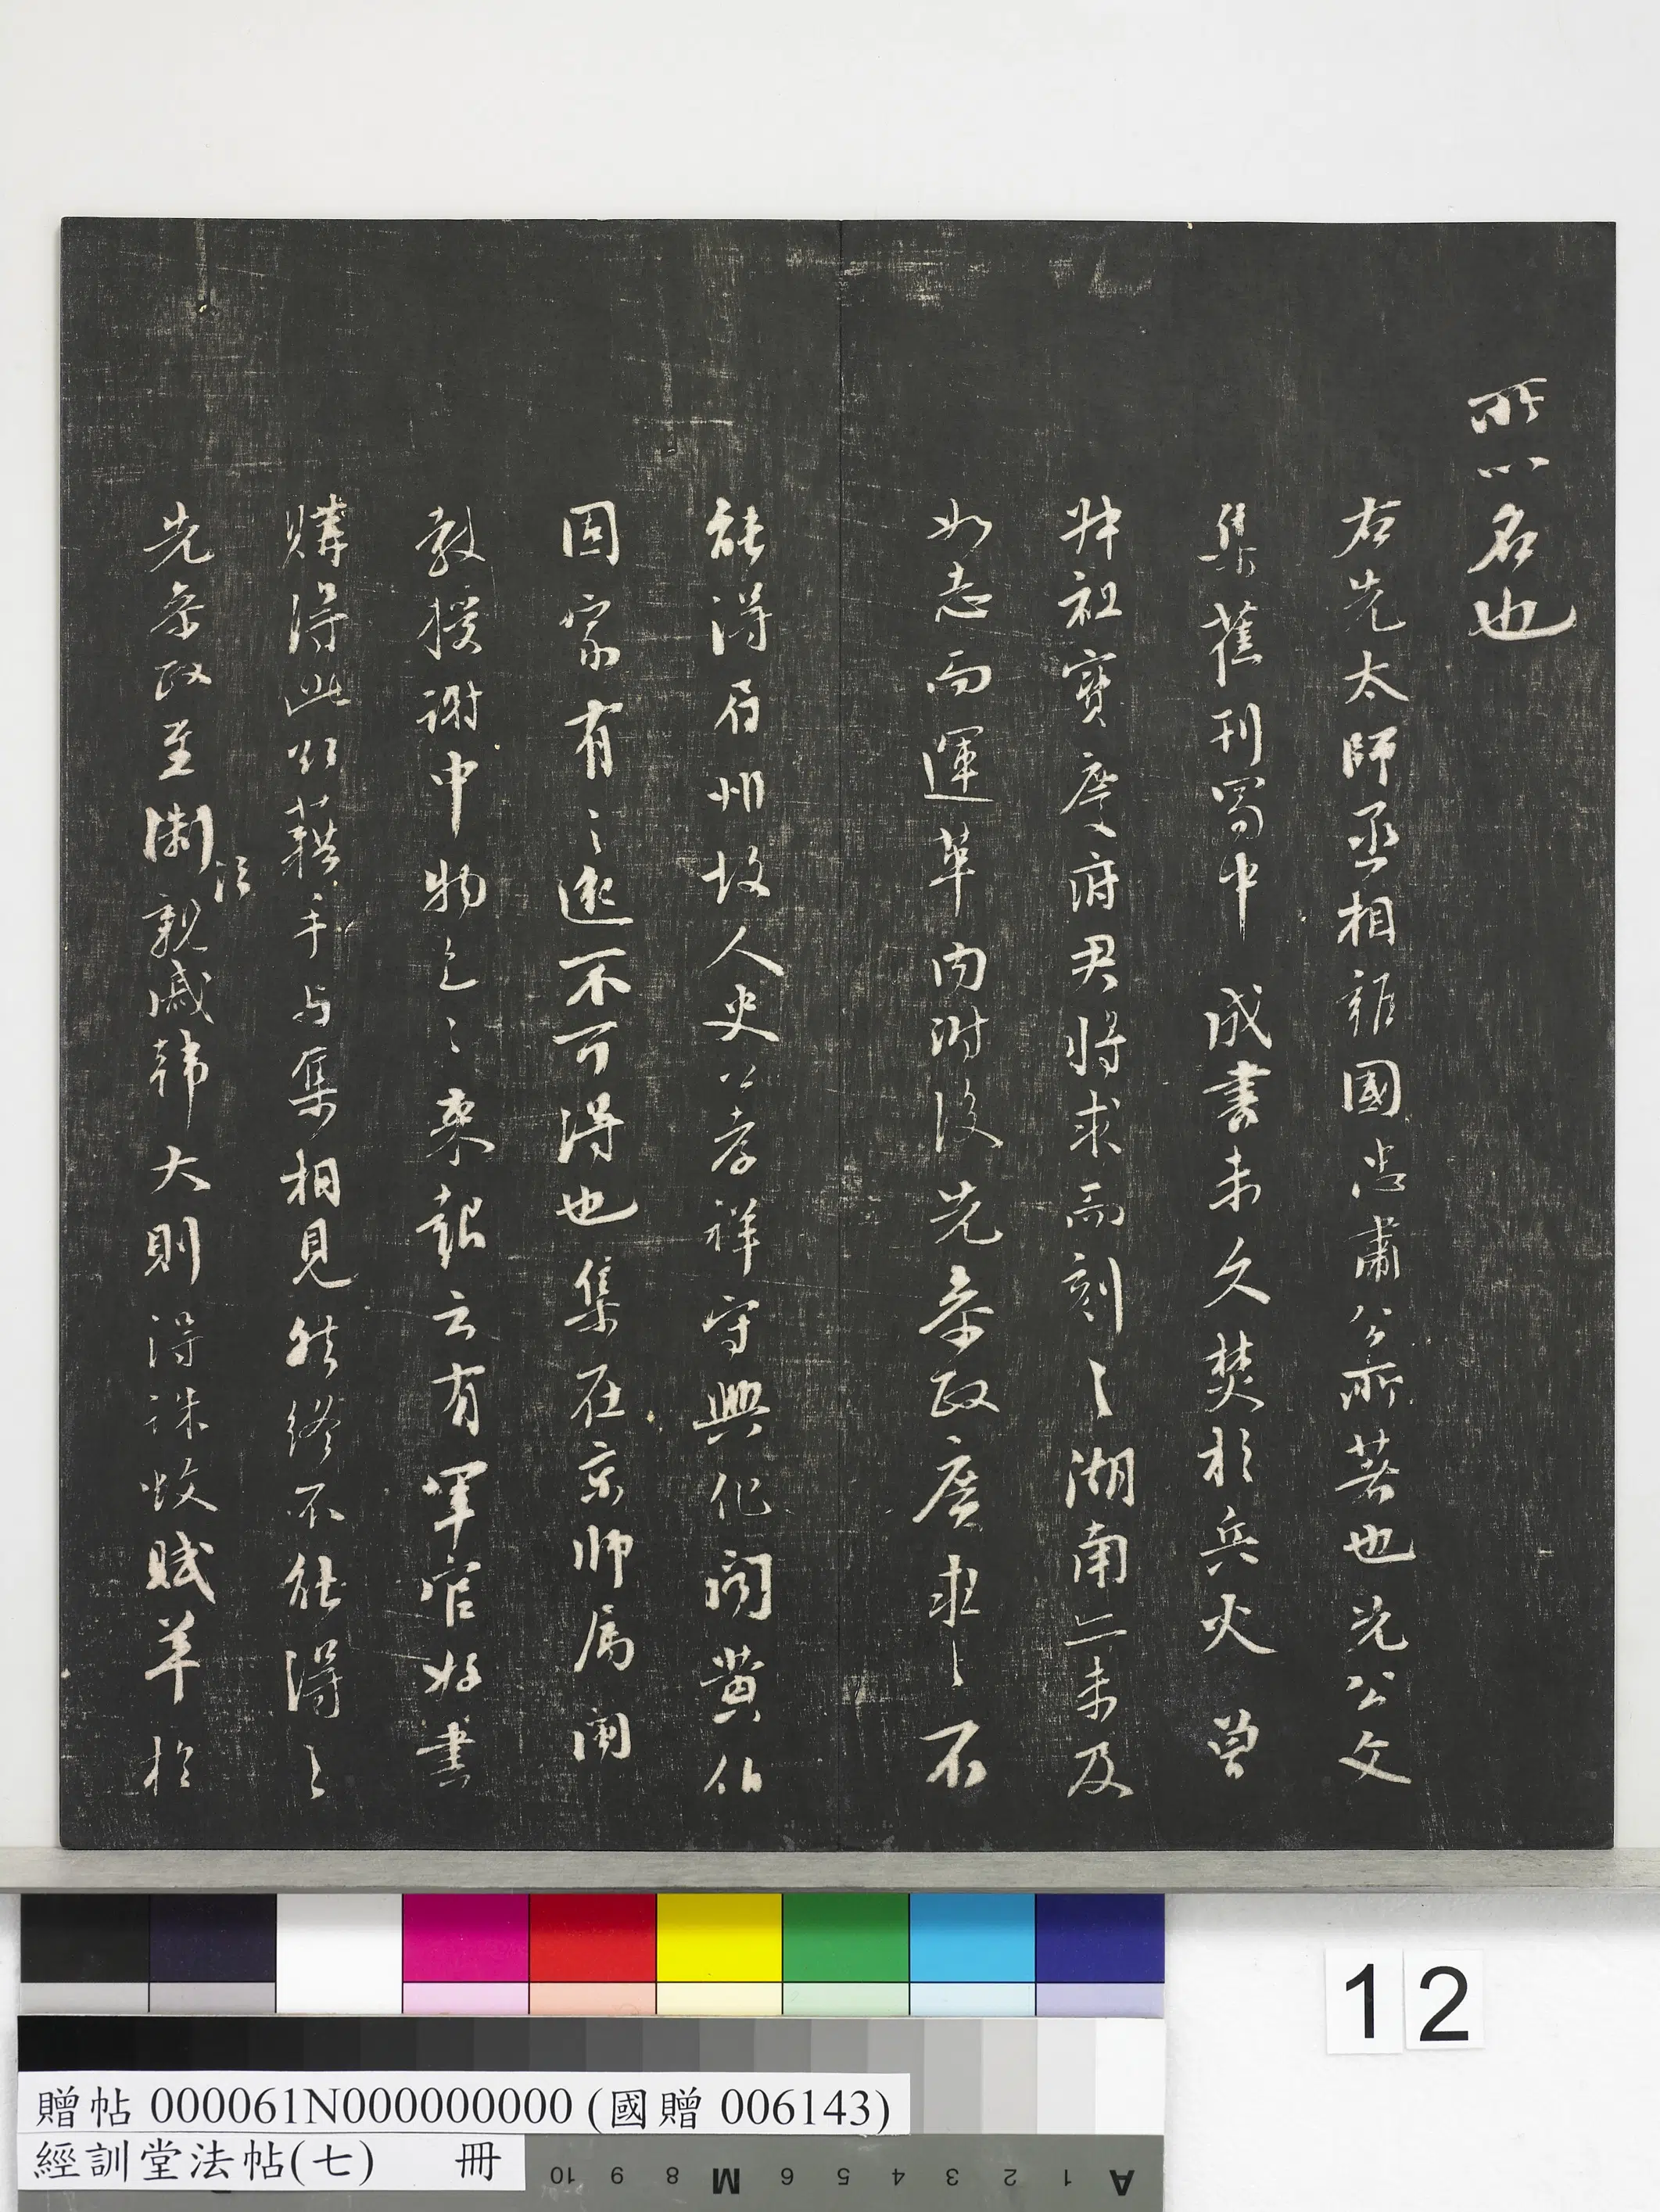 所以名也
右先太師丞相雍國忠肅公所著也先公文
集舊刊蜀中成書未久焚於兵火曾
叔祖寶慶府君將求而刻之湖南亦未及
如志而運革內附後先參政廣求之不
能得眉州故人史公孝祥守興化聞黃伯
固家有之遂不可得也集在京師属閩
教授謝中物色之來報云有軍官好書
購得此欲藉手与集相見然終不能得之
先參政至浙親戚韓大則得誅蚊賦草於
12
贈帖 000061N000000000 (國贈 006143)
經訓堂法帖(七) 冊
10 9 8 M 6 5 4 3 2 1 A